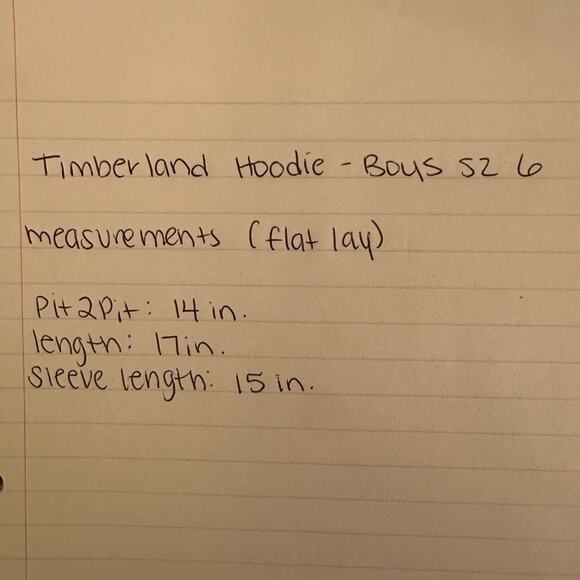 Timberland Hoodie - Boys SZ 6
measurements (flat lay)
Pit2Pit: 14 in.
length: 17in.
Sleeve length: 15 in.